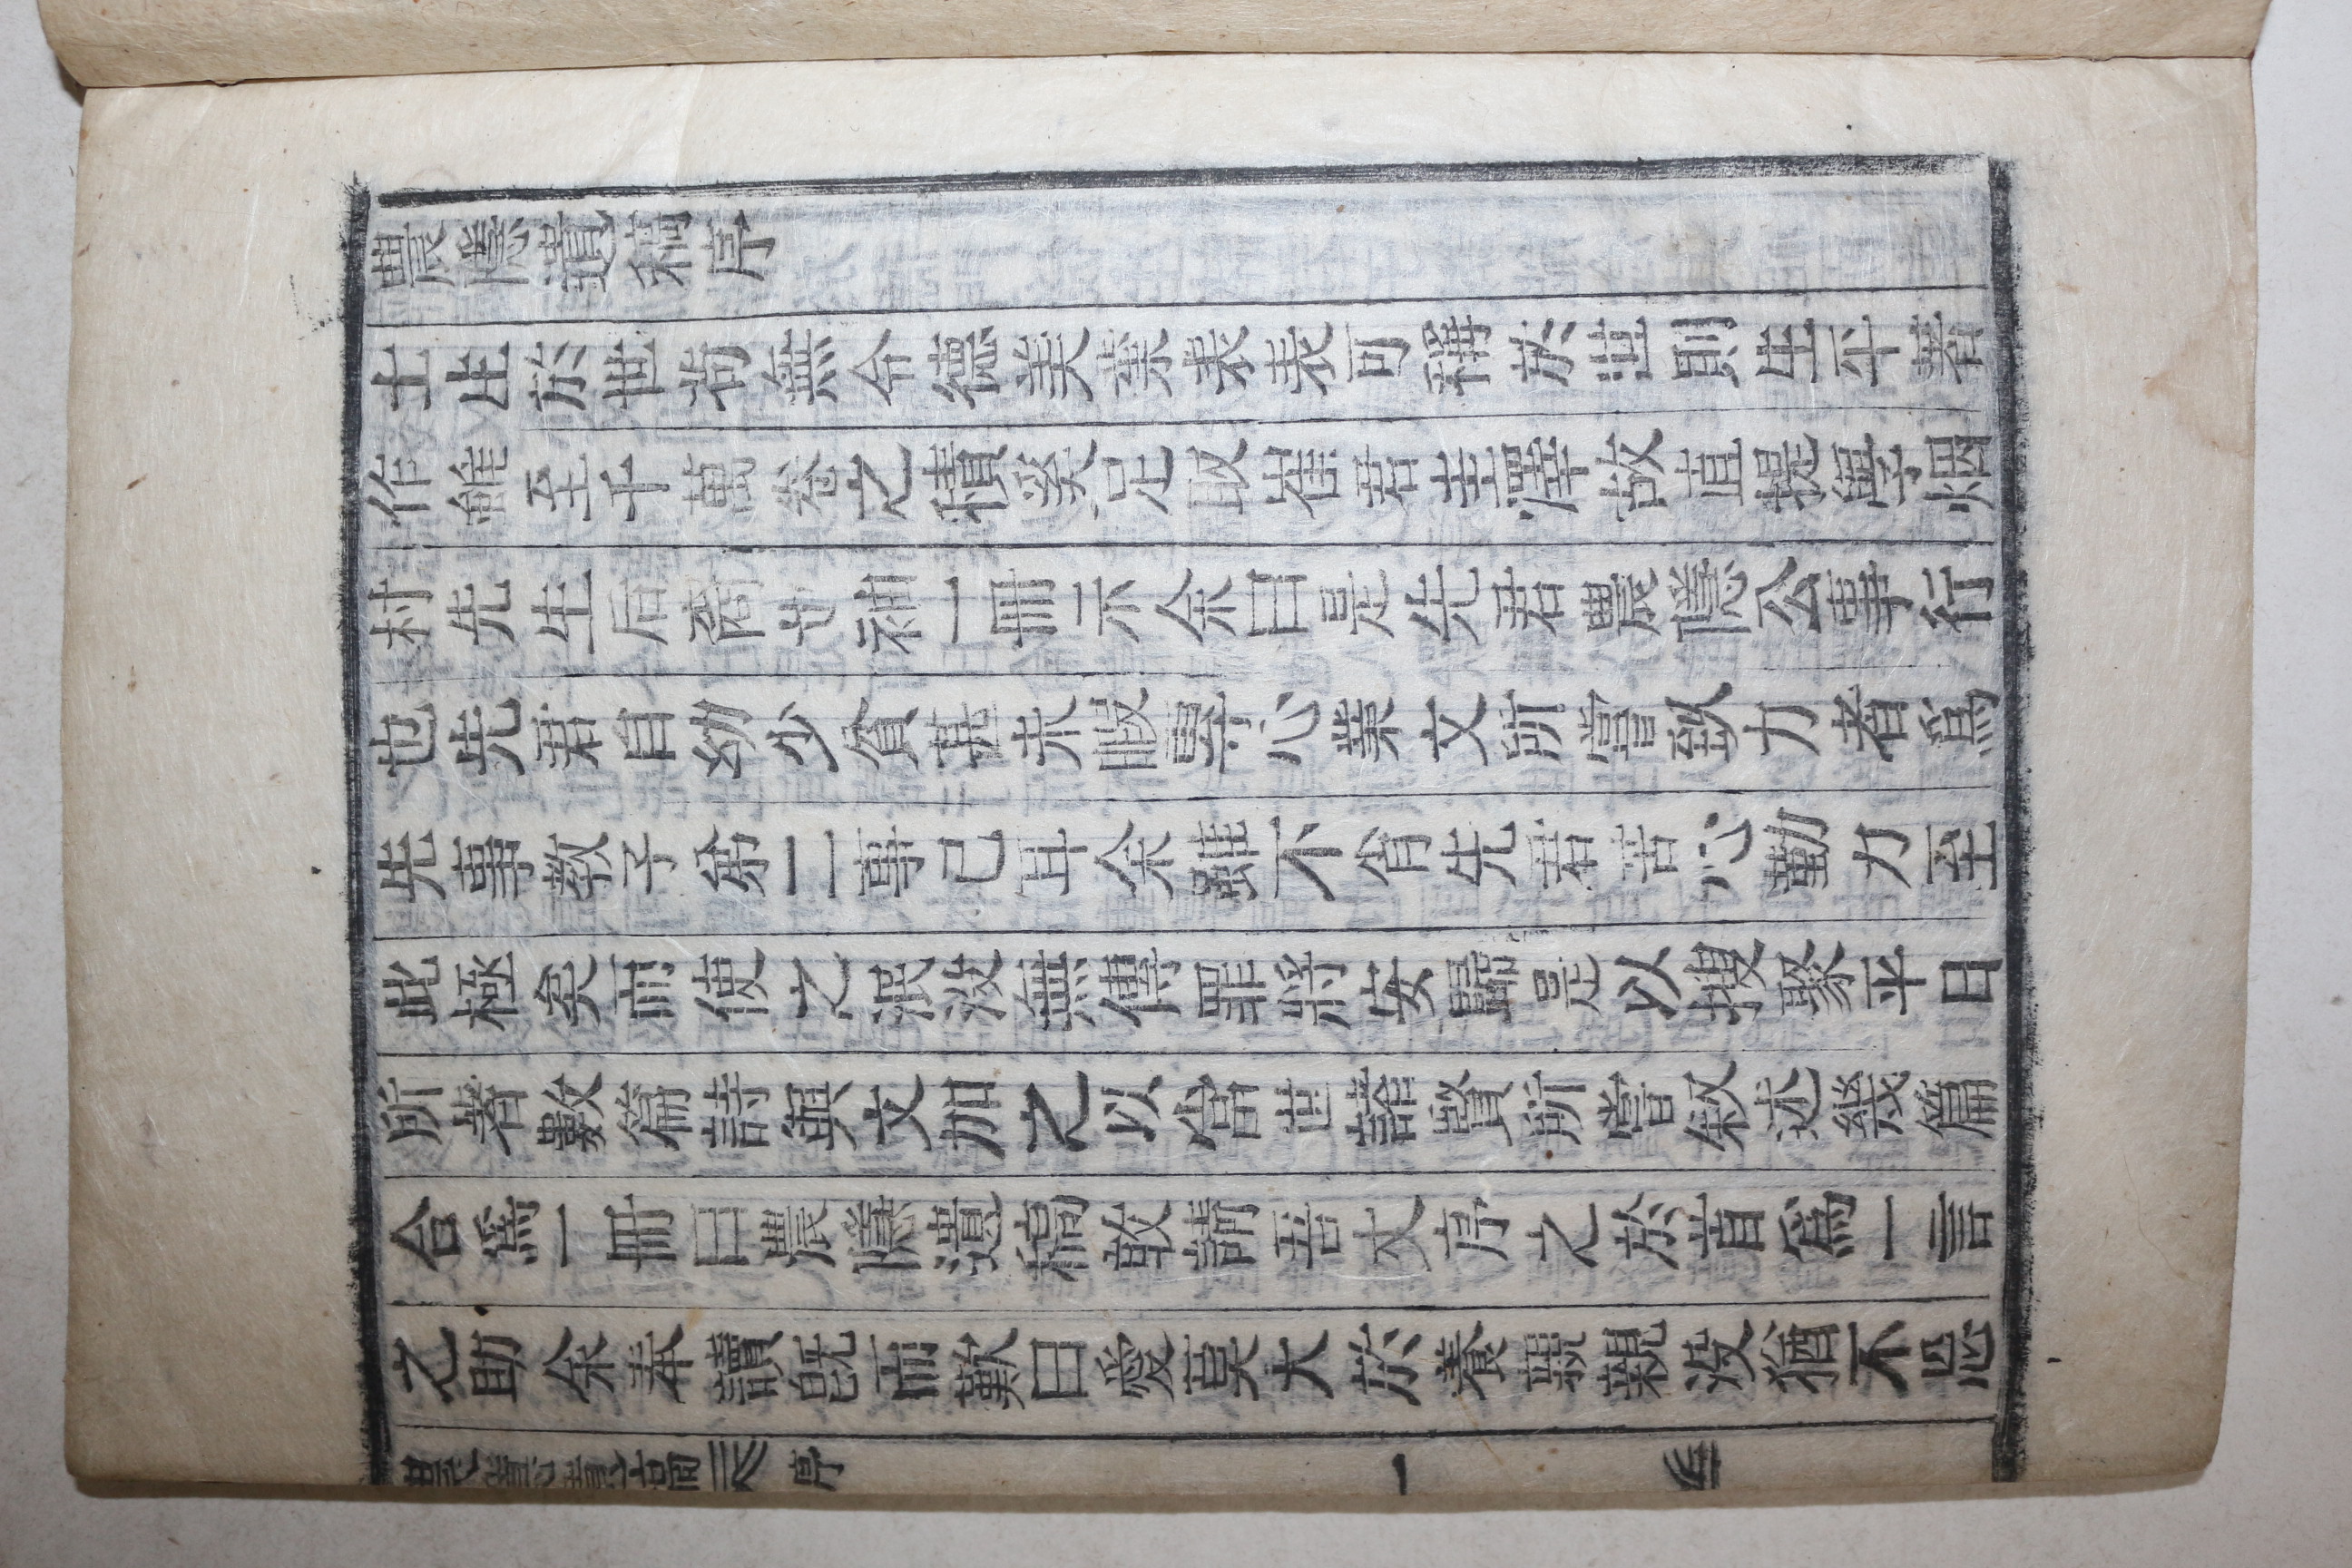 農隱遺稿序
士生於世苟無令德美業表表可稱於世則生平著
作雖至千萬卷之積奚足取崔君圭澤故直提學烟
村先生后裔也袖一冊示余曰是先君農隱公事行
也先君自幼少貧甚未暇專心業文所嘗致力者爲
先事敎子弟二事已耳余雖不肖先君苦心勤力至
此極矣而使之泯没無傳罪將安歸是以搜聚平日
所著數篇詩與文加之以當世諸賢所嘗叙述幾篇
合爲一冊曰農隱遺稿敢請吾丈序之於首爲一言
之助余奉讀旣而歎曰愛莫大於養親親没猶不忘
農隱遺稿 序 一